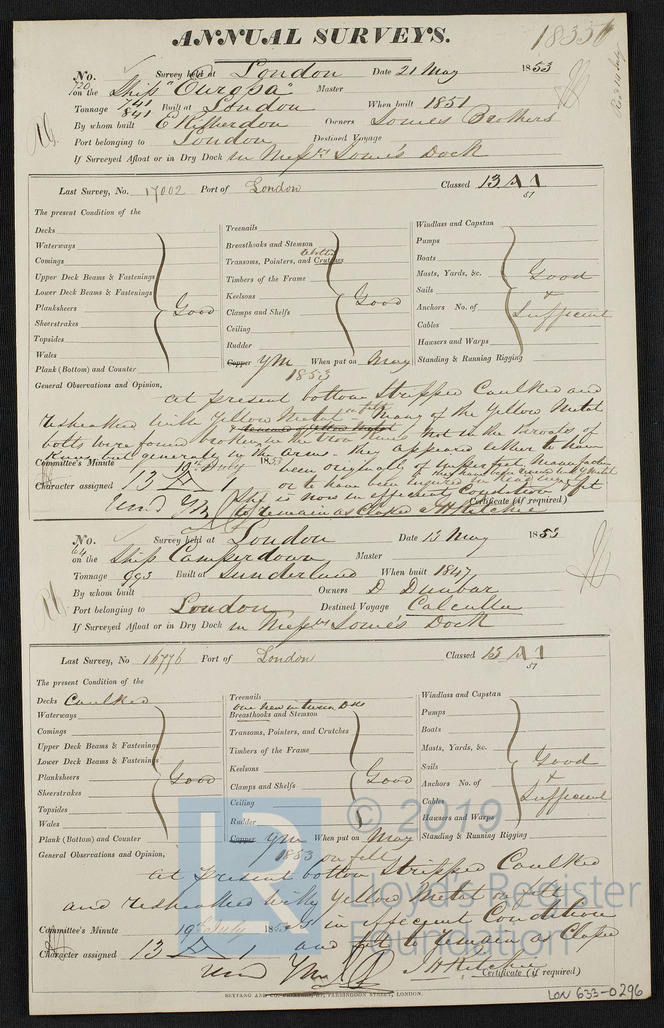 ANNUAL SURVEYS.
18356
No. 720 Survey held at London Date 21 May 1853
on the Ship "Europa" Master
Tonnage 741 841 Built at London When built 1851
By whom built Owners Somes Brothers
Port belonging to London Destined Voyage
If Surveyed Afloat or in Dry Dock in Messrs Somes's Dock
Last Survey, No. 17002 Port of London Classed 13 A 1
51
The present Condition of the
Decks
Waterways
Comings
Upper Deck Beams & Fastenings
Lower Deck Beams & Fastenings
Planksheers
Sheerstrakes
Topsides
Wales
Plank (Bottom) and Counter
Good
Treenails
Breasthooks and Stemson
Transoms, Pointers, and Crutches
Timbers of the Frame
Keelsons
Clamps and Shelfs
Ceiling
Rudder
Copper YM When put on May
1853
Good
Windlass and Capstan
Pumps
Boats
Masts, Yards, &c.
Sails
Anchors No. of
Cables
Hawsers and Warps
Standing & Running Rigging
Good
&
Sufficient
General Observations and Opinion,
at present bottom Stripped Caulked and
resheathed with Yellow Metal many of the Yellow Metal
bolts were found broken in the Iron Knees not in the throats of
Knees but generally in the arms they appeared either to have
been originally of imperfect manufacture
or to have been injured
Ship is now in efficient Condition & fit
to remain as Classed
Committee's Minute 19th July 1853
Character assigned 13 A 1
Certificate (if required)
No. 64 Survey held at London Date 13 May 1853
on the Ship Camperdown Master
Tonnage 993 Built at Sunderland When built 1847
By whom built Owners D Dunbar
Port belonging to London Destined Voyage Calcutta
If Surveyed Afloat or in Dry Dock in Messrs Somes's Dock
Last Survey, No 16776 Port of London Classed 13 A 1
51
The present Condition of the
Decks Caulked
Waterways
Comings
Upper Deck Beams & Fastenings
Lower Deck Beams & Fastenings
Planksheers
Sheerstrakes
Topsides
Wales
Plank (Bottom) and Counter
Good
Treenails
one new in tween Decks
Breasthooks and Stemson
Transoms, Pointers, and Crutches
Timbers of the Frame
Keelsons
Clamps and Shelfs
Ceiling
Rudder
Copper YM When put on May
1853 on felt
Good
Windlass and Capstan
Pumps
Boats
Masts, Yards, &c.
Sails
Anchors No. of
Cables
Hawsers and Warps
Standing & Running Rigging
Good
&
Sufficient
General Observations and Opinion,
at present bottom Stripped Caulked
and resheathed with Yellow Metal on felt
is in efficient Condition
and fit to remain as Classed
Committee's Minute 19th July 1853
Character assigned 13 A 1
J H Ritchie
Certificate (if required)
LR © 2019
Lloyd's Register
Foundation
LON 633-0296